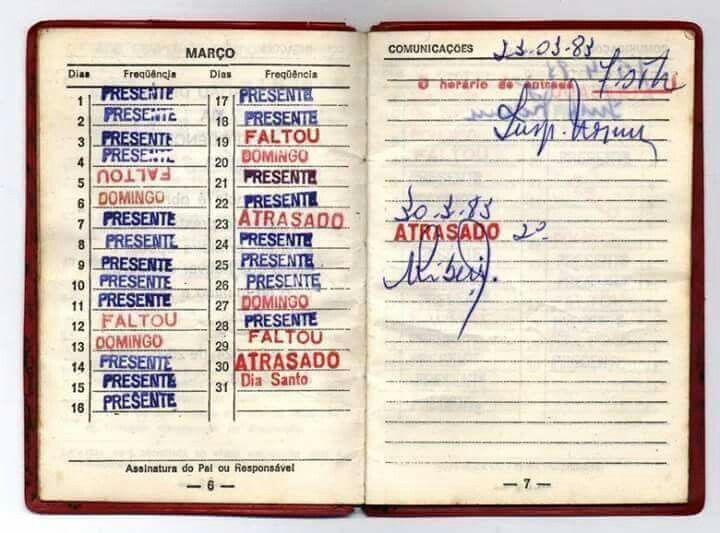 MARÇO
Dias Freqüência Dias Freqüência
1 PRESENTE 17 PRESENTE
2 PRESENTE 18 PRESENTE
3 PRESENTE 19 FALTOU
4 PRESENTE 20 DOMINGO
5 FALTOU 21 PRESENTE
6 DOMINGO 22 PRESENTE
7 PRESENTE 23 ATRASADO
8 PRESENTE 24 PRESENTE
9 PRESENTE 25 PRESENTE
10 PRESENTE 26 PRESENTE
11 PRESENTE 27 DOMINGO
12 FALTOU 28 PRESENTE
13 DOMINGO 29 FALTOU
14 PRESENTE 30 ATRASADO
15 PRESENTE 31 Dia Santo
16 PRESENTE
Assinatura do Pai ou Responsável
— 6 —
COMUNICAÇÕES 23-03-83
O horário de entrada
30-3-83
ATRASADO 2º
— 7 —